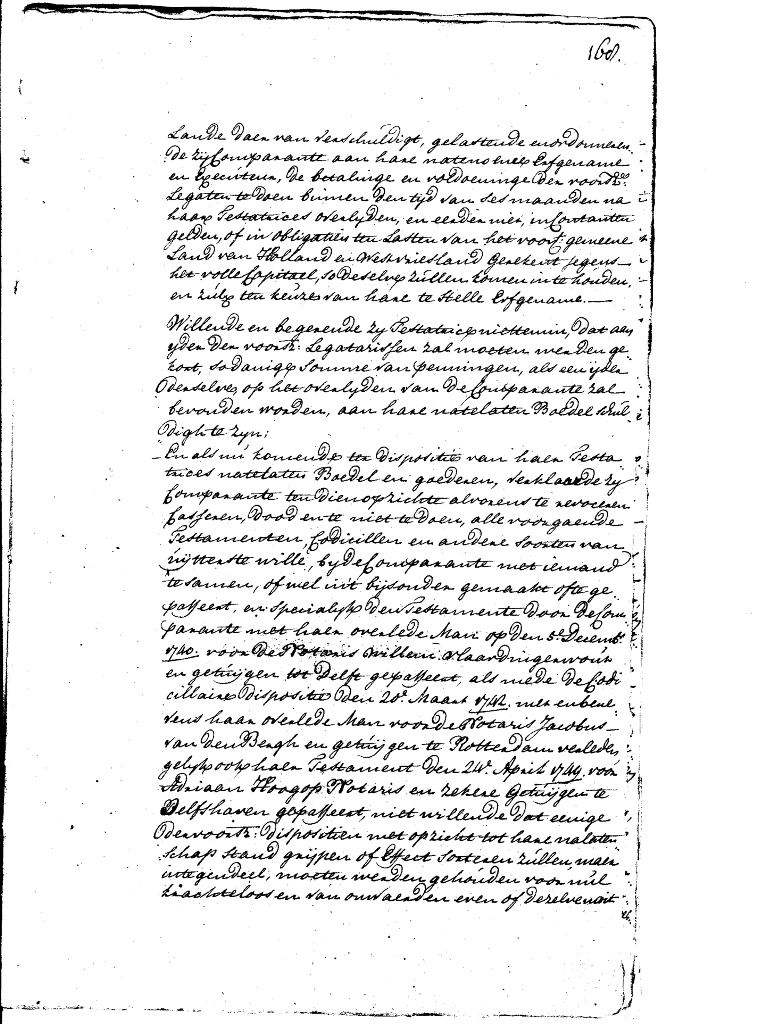 168.
Lande daer van verschuldigt, gelastende en ordonneren
de zij Comparante aan hare natenoemen Erfgename
en Executeur, de betalinge en voldoeninge der voorsz.
Legaten te doen binnen den tyd van ses maanden na
haar Testatrices overlyden, en eerder niet, in Contanten
gelden, of in obligatien ten Lasten van het voorsz. gemeene
Land van Holland en Westvriesland Gerekent jegens
het volle Capitael, so deselve zullen komen in te houden,
en zulx ten keuze van hare te stelle Erfgename.—
Willende en begerende zy Testatrice niettemin, dat aan
yder der voorsz: Legatarissen zal moeten werden ge
kort, sodanige somme van penningen, als een yder
derselver op het overlyden van de Comparante zal
bevonden worden, aan hare natelaten Boedel schul
digh te zyn;
En als nu komende ter dispositie van haer Testa
trices natelaten Boedel en goederen, verklaarde zy
Comparante ten dien opzichte alvorens te revoceren
Casseren, dood en te niet te doen, alle voorgaende
Testamenten, Codicillen en andere soorten van
uijtterste wille, by de Comparante met iemand
te samen, of wel int bijsonder gemaakt ofte ge
passeert, en specialijk den Testamente door de Com
parante met haer overlede Man op den 5e Decemb:
1740. voor de Notaris Willem Vlaardingerwout
en getuijgen tot Delft gepasseert, als mede de Codi
cillaire dispositie den 20e Maart 1742. met en bene
vens haar overlede Man voor de Notaris Jacobus
van den Bergh en getuijgen te Rotterdam verleden
gelijk ook haer Testament den 24e April 1749. voor
Adriaan Hoogop Notaris en zekere Getuijgen te
Delfshaven gepasseert, niet willende dat eenige
der voorsz: dispositien met opzicht tot hare nalaten
schap stand grijpen of Effect sorteren zullen, maer
integendeel, moeten werden gehouden voor nul
krachteloos en van onwaerden even of dezelve noit